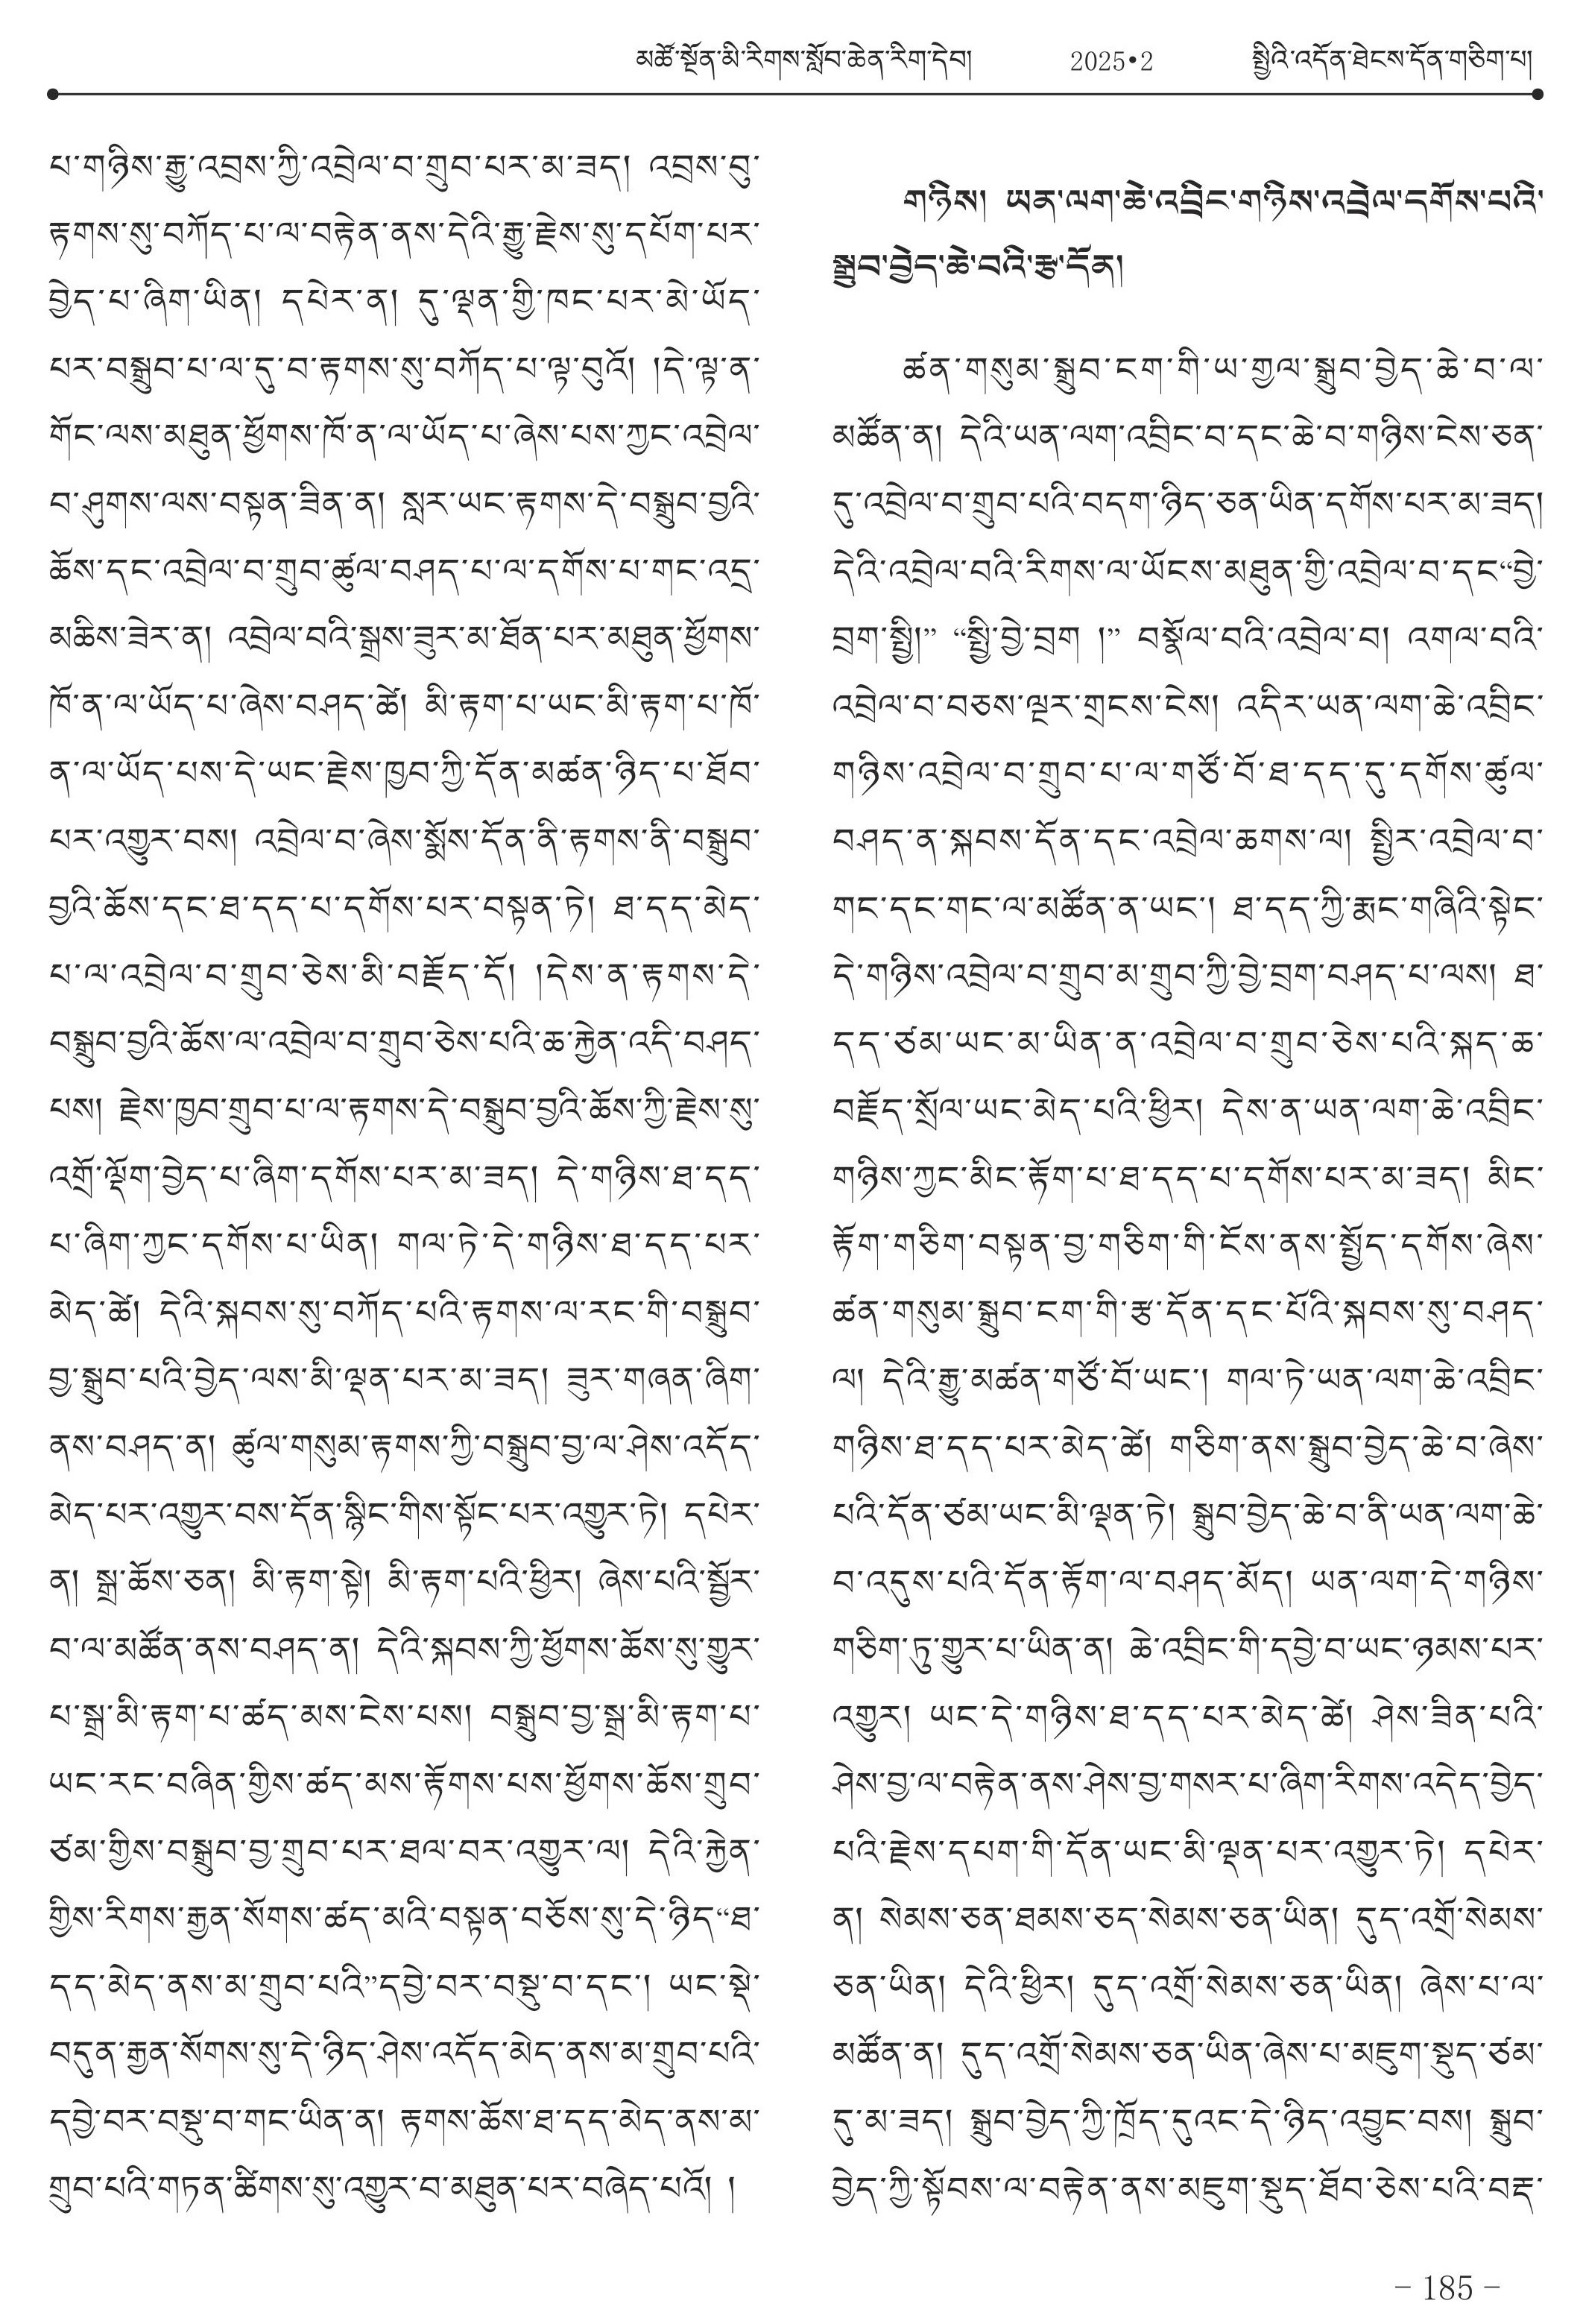 མཚོ་སྔོན་མི་རིགས་སློབ་ཆེན་རིག་དེབ། 2025•2 སྤྱིའི་འདོན་ཐེངས་དོན་གཅིག་པ།
པ་གཉིས་རྒྱུ་འབྲས་ཀྱི་འབྲེལ་བ་གྲུབ་པར་མ་ཟད། འབྲས་བུ་
རྟགས་སུ་བཀོད་པ་ལ་བརྟེན་ནས་དེའི་རྒྱུ་རྗེས་སུ་དཔོག་པར་
བྱེད་པ་ཞིག་ཡིན། དཔེར་ན། དུ་ལྡན་གྱི་ཁང་པར་མེ་ཡོད་
པར་བསྒྲུབ་པ་ལ་དུ་བ་རྟགས་སུ་བཀོད་པ་ལྟ་བུའོ། །དེ་ལྟ་ན་
གོང་ལས་མཐུན་ཕྱོགས་ཁོ་ན་ལ་ཡོད་པ་ཞེས་པས་ཀྱང་འབྲེལ་
བ་ཤུགས་ལས་བསྟན་ཟིན་ན། སླར་ཡང་རྟགས་དེ་བསྒྲུབ་བྱའི་
ཆོས་དང་འབྲེལ་བ་གྲུབ་ཚུལ་བཤད་པ་ལ་དགོས་པ་གང་འདྲ་
མཆིས་ཟེར་ན། འབྲེལ་བའི་སྒྲས་ཟུར་མ་ཐོན་པར་མཐུན་ཕྱོགས་
ཁོ་ན་ལ་ཡོད་པ་ཞེས་བཤད་ཚེ། མི་རྟག་པ་ཡང་མི་རྟག་པ་ཁོ་
ན་ལ་ཡོད་པས་དེ་ཡང་རྗེས་ཁྱབ་ཀྱི་དོན་མཚན་ཉིད་པ་ཐོབ་
པར་འགྱུར་བས། འབྲེལ་བ་ཞེས་སྨོས་དོན་ནི་རྟགས་ནི་བསྒྲུབ་
བྱའི་ཆོས་དང་ཐ་དད་པ་དགོས་པར་བསྟན་ཏེ། ཐ་དད་མེད་
པ་ལ་འབྲེལ་བ་གྲུབ་ཅེས་མི་བརྗོད་དོ། །དེས་ན་རྟགས་དེ་
བསྒྲུབ་བྱའི་ཆོས་ལ་འབྲེལ་བ་གྲུབ་ཅེས་པའི་ཆ་རྐྱེན་འདི་བཤད་
པས། རྗེས་ཁྱབ་གྲུབ་པ་ལ་རྟགས་དེ་བསྒྲུབ་བྱའི་ཆོས་ཀྱི་རྗེས་སུ་
འགྲོ་ལྡོག་བྱེད་པ་ཞིག་དགོས་པར་མ་ཟད། དེ་གཉིས་ཐ་དད་
པ་ཞིག་ཀྱང་དགོས་པ་ཡིན། གལ་ཏེ་དེ་གཉིས་ཐ་དད་པར་
མེད་ཚེ། དེའི་སྐབས་སུ་བཀོད་པའི་རྟགས་ལ་རང་གི་བསྒྲུབ་
བྱ་སྒྲུབ་པའི་བྱེད་ལས་མི་ལྡན་པར་མ་ཟད། ཟུར་གཞན་ཞིག་
ནས་བཤད་ན། ཚུལ་གསུམ་རྟགས་ཀྱི་བསྒྲུབ་བྱ་ལ་ཤེས་འདོད་
མེད་པར་འགྱུར་བས་དོན་སྙིང་གིས་སྟོང་པར་འགྱུར་ཏེ། དཔེར་
ན། སྒྲ་ཆོས་ཅན། མི་རྟག་སྟེ། མི་རྟག་པའི་ཕྱིར། ཞེས་པའི་སྦྱོར་
བ་ལ་མཚོན་ནས་བཤད་ན། དེའི་སྐབས་ཀྱི་ཕྱོགས་ཆོས་སུ་གྱུར་
པ་སྒྲ་མི་རྟག་པ་ཚད་མས་ངེས་པས། བསྒྲུབ་བྱ་སྒྲ་མི་རྟག་པ་
ཡང་རང་བཞིན་གྱིས་ཚད་མས་རྟོགས་པས་ཕྱོགས་ཆོས་གྲུབ་
ཙམ་གྱིས་བསྒྲུབ་བྱ་གྲུབ་པར་ཐལ་བར་འགྱུར་ལ། དེའི་རྐྱེན་
གྱིས་རིགས་རྒྱན་སོགས་ཚད་མའི་བསྟན་བཅོས་སུ་དེ་ཉིད“ཐ་
དད་མེད་ནས་མ་གྲུབ་པའི”དབྱེ་བར་བསྡུ་བ་དང་། ཡང་སྡེ་
བདུན་རྒྱན་སོགས་སུ་དེ་ཉིད་ཤེས་འདོད་མེད་ནས་མ་གྲུབ་པའི་
དབྱེ་བར་བསྡུ་བ་གང་ཡིན་ན། རྟགས་ཆོས་ཐ་དད་མེད་ནས་མ་
གྲུབ་པའི་གཏན་ཚིགས་སུ་འགྱུར་བ་མཐུན་པར་བཞེད་པའོ། །
གཉིས། ཡན་ལག་ཆེ་འབྲིང་གཉིས་འབྲེལ་དགོས་པའི་
སྒྲུབ་བྱེད་ཆེ་བའི་རྩ་དོན།
ཚན་གསུམ་སྒྲུབ་ངག་གི་ཡ་གྱལ་སྒྲུབ་བྱེད་ཆེ་བ་ལ་
མཚོན་ན། དེའི་ཡན་ལག་འབྲིང་བ་དང་ཆེ་བ་གཉིས་ངེས་ཅན་
དུ་འབྲེལ་བ་གྲུབ་པའི་བདག་ཉིད་ཅན་ཡིན་དགོས་པར་མ་ཟད།
དེའི་འབྲེལ་བའི་རིགས་ལ་ཡོངས་མཐུན་གྱི་འབྲེལ་བ་དང“བྱེ་
བྲག་སྤྱི།” “སྤྱི་བྱེ་བྲག །” བསྣོལ་བའི་འབྲེལ་བ། འགལ་བའི་
འབྲེལ་བ་བཅས་ལྔར་གྲངས་ངེས། འདིར་ཡན་ལག་ཆེ་འབྲིང་
གཉིས་འབྲེལ་བ་གྲུབ་པ་ལ་གཙོ་བོ་ཐ་དད་དུ་དགོས་ཚུལ་
བཤད་ན་སྐབས་དོན་དང་འབྲེལ་ཆགས་ལ། སྤྱིར་འབྲེལ་བ་
གང་དང་གང་ལ་མཚོན་ན་ཡང་། ཐ་དད་ཀྱི་རྨང་གཞིའི་སྟེང་
དེ་གཉིས་འབྲེལ་བ་གྲུབ་མ་གྲུབ་ཀྱི་བྱེ་བྲག་བཤད་པ་ལས། ཐ་
དད་ཙམ་ཡང་མ་ཡིན་ན་འབྲེལ་བ་གྲུབ་ཅེས་པའི་སྐད་ཆ་
བརྗོད་སྲོལ་ཡང་མེད་པའི་ཕྱིར། དེས་ན་ཡན་ལག་ཆེ་འབྲིང་
གཉིས་ཀྱང་མིང་རྟོག་པ་ཐ་དད་པ་དགོས་པར་མ་ཟད། མིང་
རྟོག་གཅིག་བསྟན་བྱ་གཅིག་གི་ངོས་ནས་སྤྱོད་དགོས་ཞེས་
ཚན་གསུམ་སྒྲུབ་ངག་གི་རྩ་དོན་དང་པོའི་སྐབས་སུ་བཤད་
ལ། དེའི་རྒྱུ་མཚན་གཙོ་བོ་ཡང་། གལ་ཏེ་ཡན་ལག་ཆེ་འབྲིང་
གཉིས་ཐ་དད་པར་མེད་ཚེ། གཅིག་ནས་སྒྲུབ་བྱེད་ཆེ་བ་ཞེས་
པའི་དོན་ཙམ་ཡང་མི་ལྡན་ཏེ། སྒྲུབ་བྱེད་ཆེ་བ་ནི་ཡན་ལག་ཆེ་
བ་འདུས་པའི་དོན་རྟོག་ལ་བཤད་མོད། ཡན་ལག་དེ་གཉིས་
གཅིག་ཏུ་གྱུར་པ་ཡིན་ན། ཆེ་འབྲིང་གི་དབྱེ་བ་ཡང་ཉམས་པར་
འགྱུར། ཡང་དེ་གཉིས་ཐ་དད་པར་མེད་ཚེ། ཤེས་ཟིན་པའི་
ཤེས་བྱ་ལ་བརྟེན་ནས་ཤེས་བྱ་གསར་པ་ཞིག་རིགས་འདེད་བྱེད་
པའི་རྗེས་དཔག་གི་དོན་ཡང་མི་ལྡན་པར་འགྱུར་ཏེ། དཔེར་
ན། སེམས་ཅན་ཐམས་ཅད་སེམས་ཅན་ཡིན། དུད་འགྲོ་སེམས་
ཅན་ཡིན། དེའི་ཕྱིར། དུད་འགྲོ་སེམས་ཅན་ཡིན། ཞེས་པ་ལ་
མཚོན་ན། དུད་འགྲོ་སེམས་ཅན་ཡིན་ཞེས་པ་མཇུག་སྡུད་ཙམ་
དུ་མ་ཟད། སྒྲུབ་བྱེད་ཀྱི་ཁྲོད་དུའང་དེ་ཉིད་འབྱུང་བས། སྒྲུབ་
བྱེད་ཀྱི་སྟོབས་ལ་བརྟེན་ནས་མཇུག་སྡུད་ཐོབ་ཅེས་པའི་བརྡ་
– 185 –